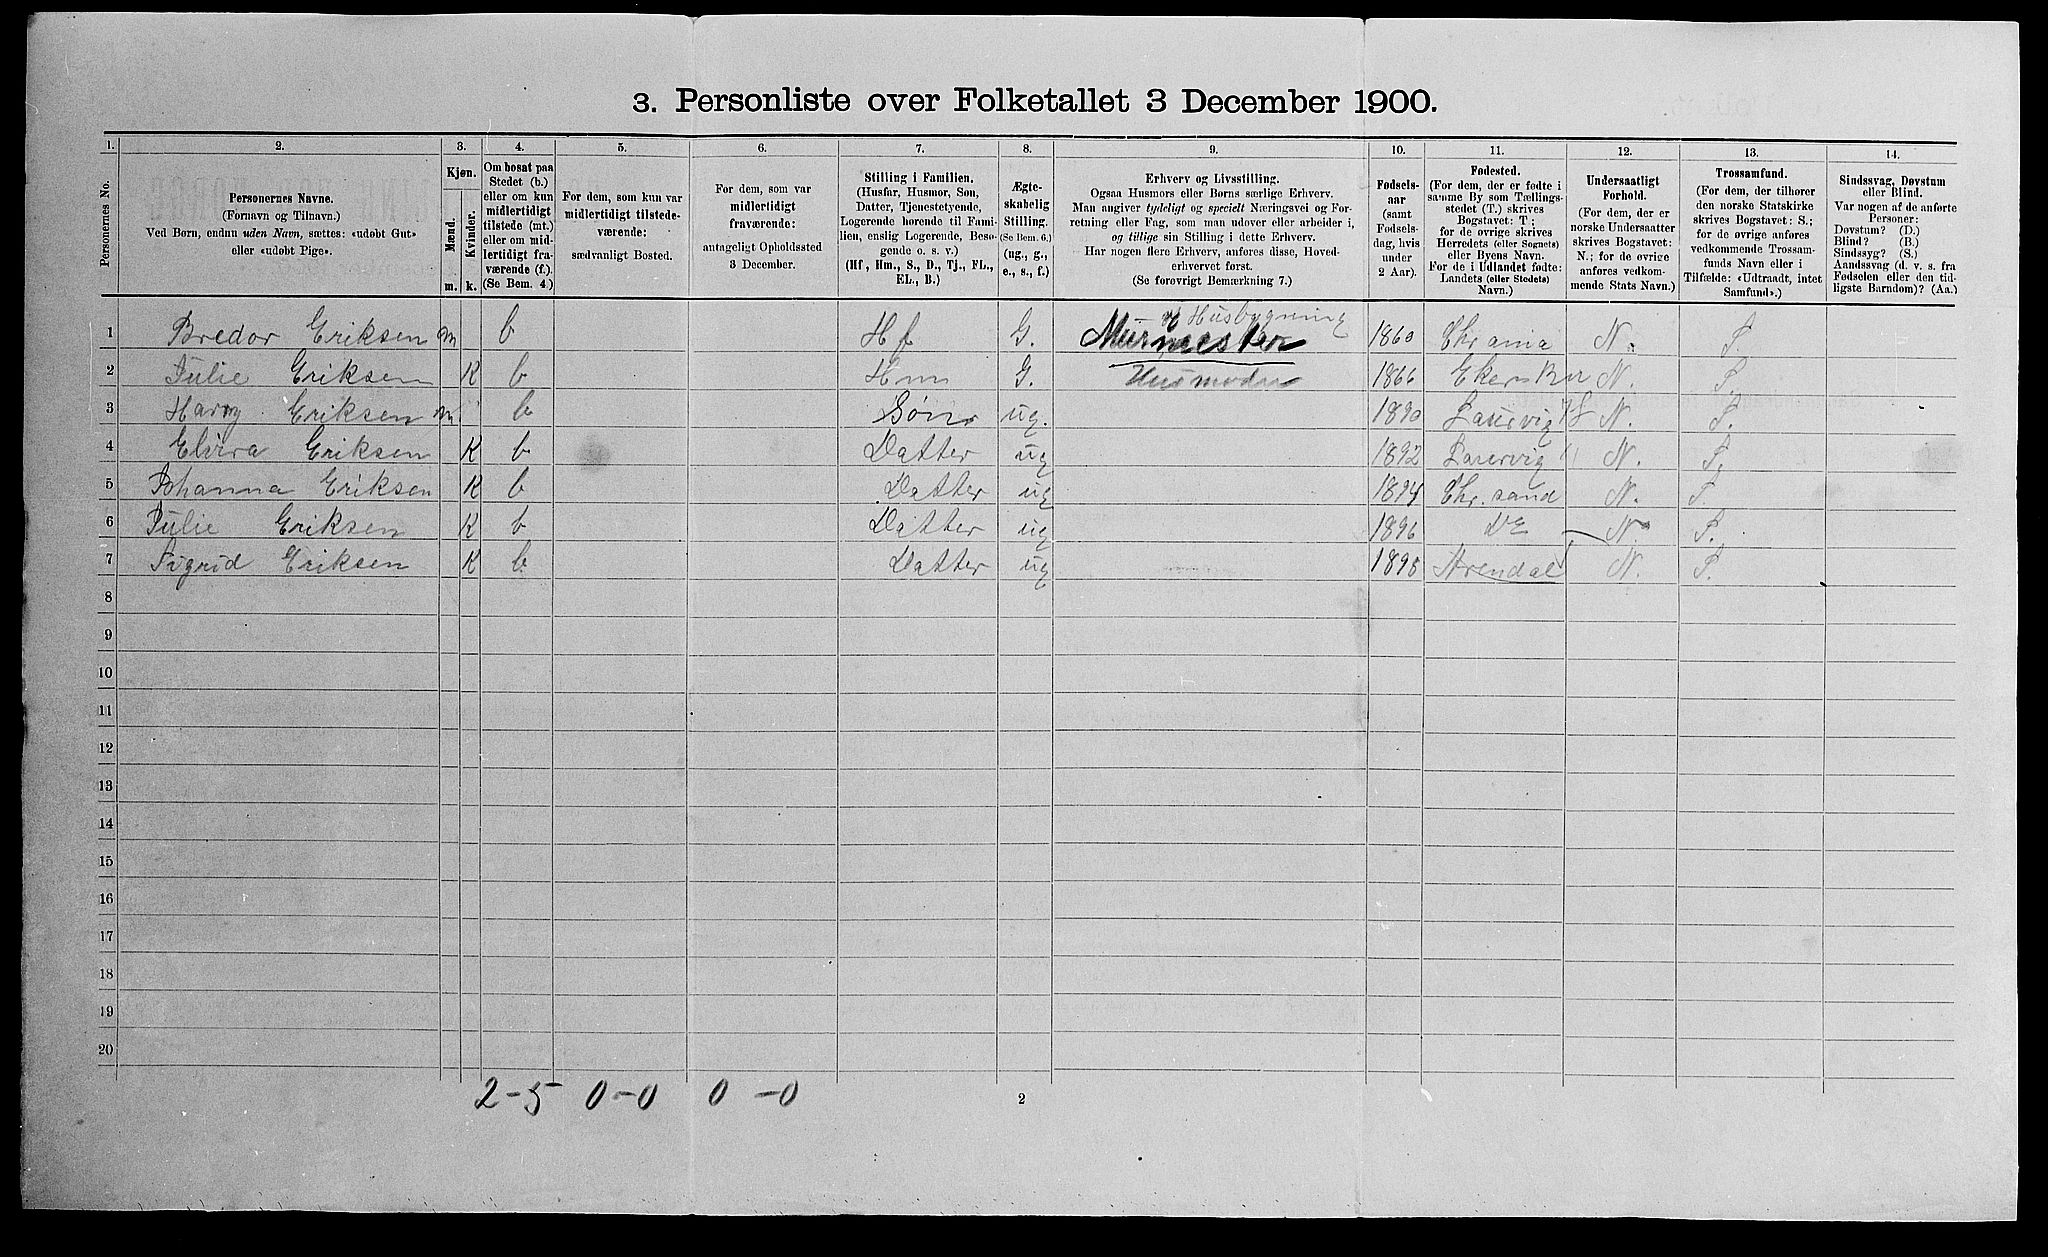 3. Personliste over Folketallet 3 December 1900.
1. 2. 3. 4. 5. 6. 7. 8. 9. 10. 11. 12. 13. 14.
Personernes No.
Personernes Navne.
(Fornavn og Tilnavn.)
Ved Børn, endnu uden Navn, sættes: «udøbt Gut»
eller «udøbt Pige».
Kjøn.
Mænd.
Kvinder.
m. k.
Om bosat paa
Stedet (b.)
eller om kun
midlertidigt
tilstede (mt.)
eller om mid-
lertidigt fra-
værende (f.).
(Se Bem. 4.)
For dem, som kun var
midlertidigt tilstede-
værende:
sædvanligt Bosted.
For dem, som var
midlertidigt
fraværende:
antageligt Opholdssted
3 December.
Stilling i Familien.
(Husfar, Husmor, Søn,
Datter, Tjenestetyende,
Logerende hørende til Fami-
lien, enslig Logerende, Besø-
gende o. s. v.)
(Hf., Hm., S., D., Tj., FL.,
EL., B.)
Ægte-
skabelig
Stilling.
(Se Bem. 6.)
(ug., g.,
e., s., f.)
Erhverv og Livsstilling.
Ogsaa Husmors eller Børns særlige Erhverv.
Man angiver tydeligt og specielt Næringsvei og For-
retning eller Fag, som man udover eller arbeider i,
og tillige sin Stilling i dette Erhverv.
Har nogen flere Erhverv, anføres disse, Hoved-
erhvervet først.
(Se forøvrigt Bemærkning 7.)
Fødsels-
aar
(samt
Fødsels-
dag, hvis
under
2 Aar).
Fødested.
(For dem, der er fødte i
samme By som Tællings-
stedet (T.) skrives
Bogstavet: T;
for de øvrige skrives
Herredets (eller Sognets)
eller Byens Navn.
For de i Udlandet fødte:
Landets (eller Stedets)
Navn.)
Undersaatligt
Forhold.
(For dem, der er
norske Undersaatter
skrives Bogstavet:
N.; for de øvrige
anføres vedkom-
mende Stats Navn.)
Trossamfund.
(For dem, der tilhører
den norske Statskirke
skrives Bogstavet: S.;
for de øvrige anføres
vedkommende Trossam-
funds Navn eller i
Tilfælde: «Udtraadt, intet
Samfund».)
Sindssvag, Døvstum
eller Blind.
Var nogen af de anførte
Personer:
Døvstum? (D.)
Blind? (B.)
Sindssyg? (S.)
Aandssvag (d. v. s. fra
Fødselen eller den tid-
ligste Barndom)? (Aa.)
Husbygning
1 Bredor Eriksen m b Hf G. Murmester 1860 Chr ania N. S
2 Julie Eriksen K b Hm G. Husmoder 1866 N. S.
3 Harry Eriksen m b Søn ug. 1890 Laurvig N. S.
4 Elvira Eriksen K b Datter ug 1892 Laurvig N. S.
5 Johanna Eriksen K b Datter ug 1894 Chr. sand N. S.
6 Julie Eriksen K b Datter ug 1896 N. S.
7 Sigrid Eriksen K b Datter ug 1898 Arendal N. S.
8
9
10
11
12
13
14
15
16
17
18
19
20
2-5 0-0 0-0
2